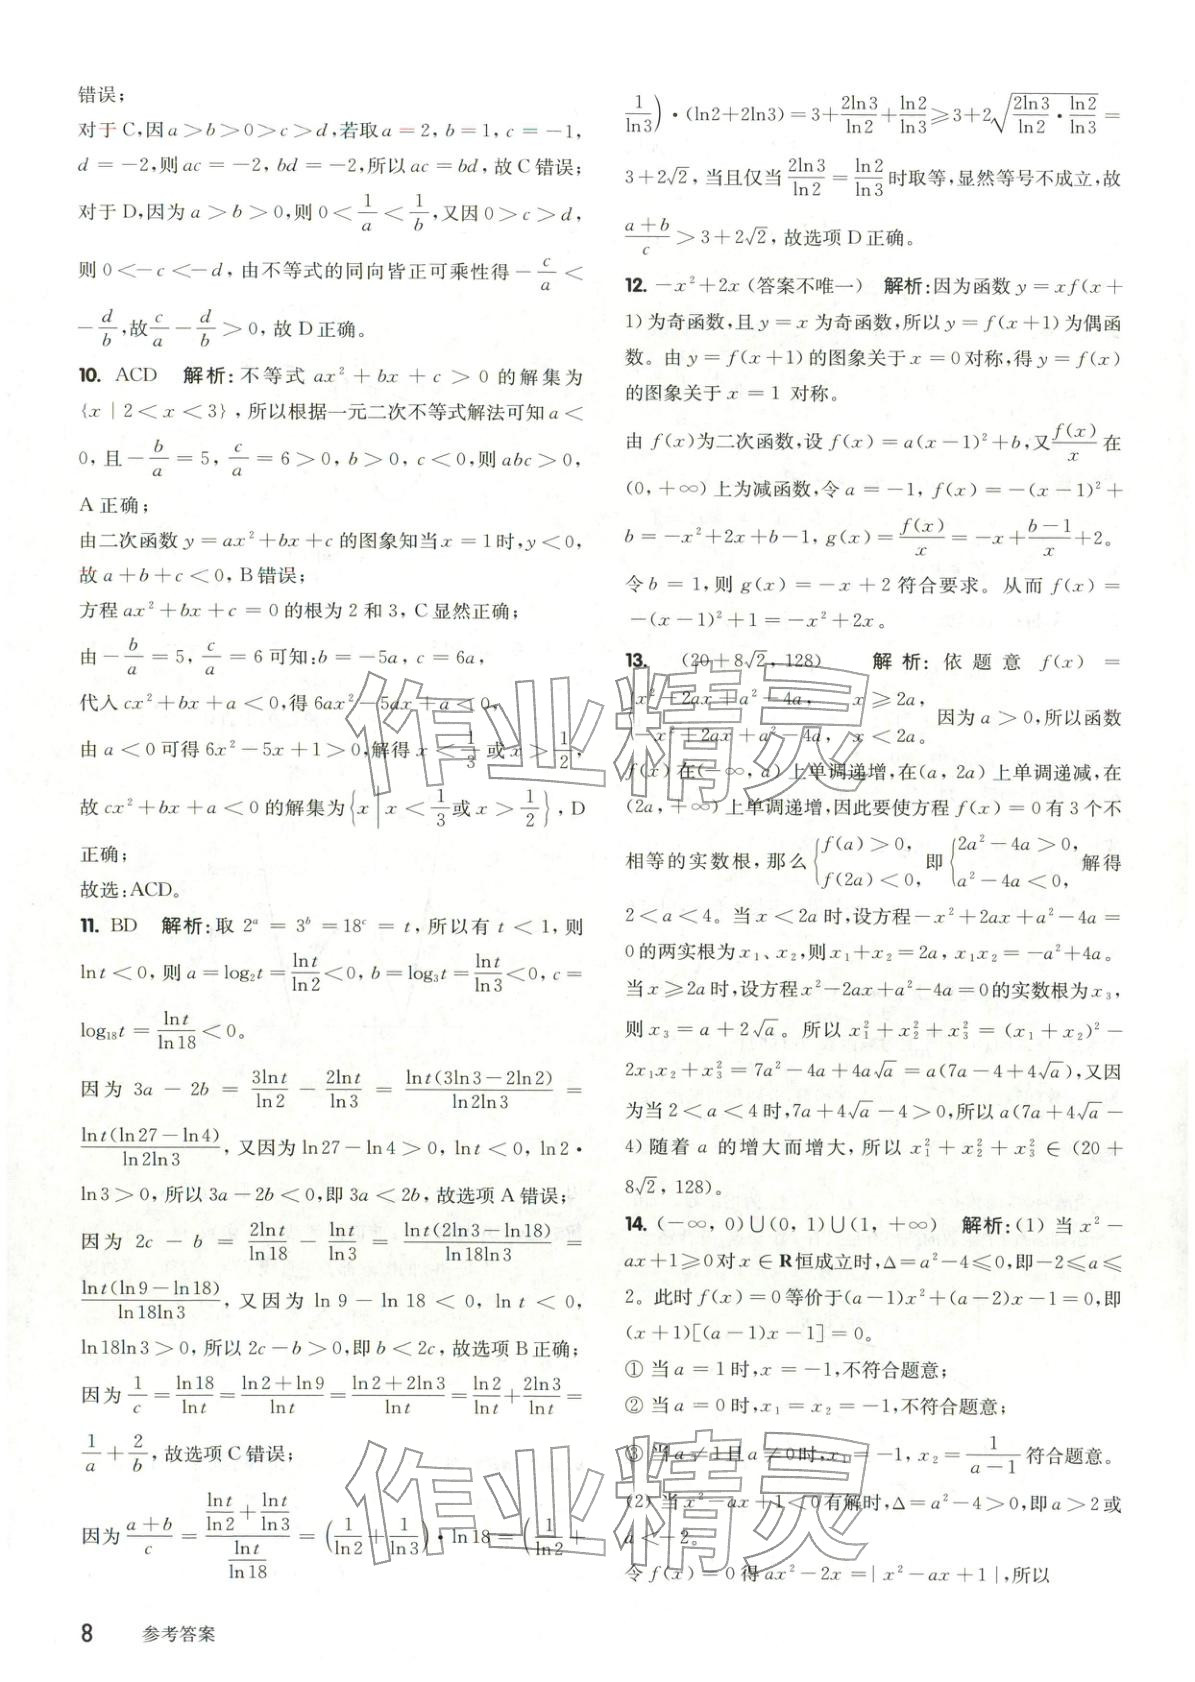 错误；
对于 C,因 a＞b＞0＞c＞d,若取 a＝2, b＝1, c＝－1,
d＝－2,则 ac＝－2, bd＝－2,所以 ac＝bd, 故 C 错误；
对于 D,因为 a＞b＞0,则 0＜1/a＜1/b,又因 0＞c＞d,
则 0＜－c＜－d, 由不等式的同向皆正可乘性得－c/a＜
－d/b,故 c/a－d/b＞0, 故 D 正确。
10. ACD 解析:不等式 ax²＋bx＋c＞0 的解集为
{x | 2＜x＜3},所以根据一元二次不等式解法可知 a＜
0,且－b/a＝5, c/a＝6＞0, b＞0, c＜0,则 abc＞0,
A 正确；
由二次函数 y＝ax²＋bx＋c 的图象知当 x＝1时, y＜0,
故 a＋b＋c＜0, B 错误；
方程 ax²＋bx＋c＝0 的根为 2 和 3, C 显然正确；
由－b/a＝5, c/a＝6 可知:b＝－5a, c＝6a,
代入 cx²＋bx＋a＜0,得 6ax²－5ax＋a＜0,
由 a＜0 可得 6x²－5x＋1＞0,解得 x＜1/3 或 x＞1/2,
故 cx²＋bx＋a＜0 的解集为{x | x＜1/3 或 x＞1/2}, D
正确；
故选:ACD。
11. BD 解析:取 2ᵃ＝3ᵇ＝18ᶜ＝t, 所以有 t＜1, 则
ln t＜0, 则 a＝log₂t＝ln t/ln 2＜0, b＝log₃t＝ln t/ln 3＜0, c＝
log₁₈t＝ln t/ln 18＜0。
因为 3a－2b＝3ln t/ln 2－2ln t/ln 3＝ln t(3ln 3－2ln 2)/ln 2ln 3＝
ln t(ln 27－ln 4)/ln 2ln 3, 又因为 ln 27－ln 4＞0, ln t＜0, ln 2·
ln 3＞0, 所以 3a－2b＜0,即 3a＜2b, 故选项 A 错误；
因为 2c－b＝2ln t/ln 18－ln t/ln 3＝ln t(2ln 3－ln 18)/ln 18ln 3＝
ln t(ln 9－ln 18)/ln 18ln 3, 又因为 ln 9－ln 18＜0, ln t＜0,
ln 18ln 3＞0, 所以 2c－b＞0,即 b＜2c, 故选项 B 正确；
因为 1/c＝ln 18/ln t＝(ln 2＋ln 9)/ln t＝(ln 2＋2ln 3)/ln t＝ln 2/ln t＋2ln 3/ln t＝
1/a＋2/b,故选项 C 错误；
因为 (a＋b)/c＝(ln t/ln 2＋ln t/ln 3)/(ln t/ln 18)＝(1/ln 2＋1/ln 3)·ln 18＝(1/ln 2＋
1/ln 3)·(ln 2＋2ln 3)＝3＋2ln 3/ln 2＋ln 2/ln 3≥3＋2√(2ln 3/ln 2·ln 2/ln 3)＝
3＋2√2, 当且仅当 2ln 3/ln 2＝ln 2/ln 3 时取等,显然等号不成立,故
(a＋b)/c＞3＋2√2, 故选项 D 正确。
12. －x²＋2x (答案不唯一) 解析:因为函数 y＝xf(x＋
1)为奇函数,且 y＝x 为奇函数,所以 y＝f(x＋1)为偶函
数。由 y＝f(x＋1)的图象关于 x＝0对称,得 y＝f(x)
的图象关于 x＝1 对称。
由 f(x)为二次函数,设 f(x)＝a(x－1)²＋b,又 f(x)/x 在
(0,＋∞)上为减函数,令 a＝－1, f(x)＝－(x－1)²＋
b＝－x²＋2x＋b－1, g(x)＝f(x)/x＝－x＋(b－1)/x＋2。
令 b＝1,则 g(x)＝－x＋2 符合要求。从而 f(x)＝
－(x－1)²＋1＝－x²＋2x。
13. (20＋8√2, 128) 解析: 依题意 f(x)＝
{x²－2ax＋a²－4a, x≥2a,
－x²＋2ax＋a²－4a, x＜2a。 因为 a＞0,所以函数
f(x)在(－∞, a)上单调递增,在(a, 2a)上单调递减,在
(2a,＋∞)上单调递增,因此要使方程 f(x)＝0有 3 个不
相等的实数根,那么{f(a)＞0, f(2a)＜0, 即{2a²－4a＞0, a²－4a＜0, 解得
2＜a＜4。当 x＜2a 时,设方程－x²＋2ax＋a²－4a＝
0 的两实根为 x₁、x₂,则 x₁＋x₂＝2a, x₁x₂＝－a²＋4a。
当 x≥2a 时,设方程 x²－2ax＋a²－4a＝0的实数根为 x₃,
则 x₃＝a＋2√a。所以 x₁²＋x₂²＋x₃²＝(x₁＋x₂)²－
2x₁x₂＋x₃²＝7a²－4a＋4a√a＝a(7a－4＋4√a),又因
为当 2＜a＜4 时,7a＋4√a－4＞0,所以 a(7a＋4√a－
4)随着 a 的增大而增大, 所以 x₁²＋x₂²＋x₃²∈(20＋
8√2, 128)。
14. (－∞, 0)∪(0, 1)∪(1,＋∞) 解析:(1) 当 x²－
ax＋1≥0对 x∈R恒成立时,Δ＝a²－4≤0,即－2≤a≤
2。此时 f(x)＝0 等价于(a－1)x²＋(a－2)x－1＝0,即
(x＋1)[(a－1)x－1]＝0。
① 当 a＝1时, x＝－1,不符合题意；
② 当 a＝0 时, x₁＝x₂＝－1,不符合题意；
③ 当 a≠1且 a≠0时, x₁＝－1, x₂＝1/(a－1) 符合题意。
(2) 当 x²－ax＋1＜0有解时,Δ＝a²－4＞0,即 a＞2或
a＜－2。
令 f(x)＝0 得 ax²－2x＝| x²－ax＋1 |,所以
8 参考答案
作业精灵
作业精灵